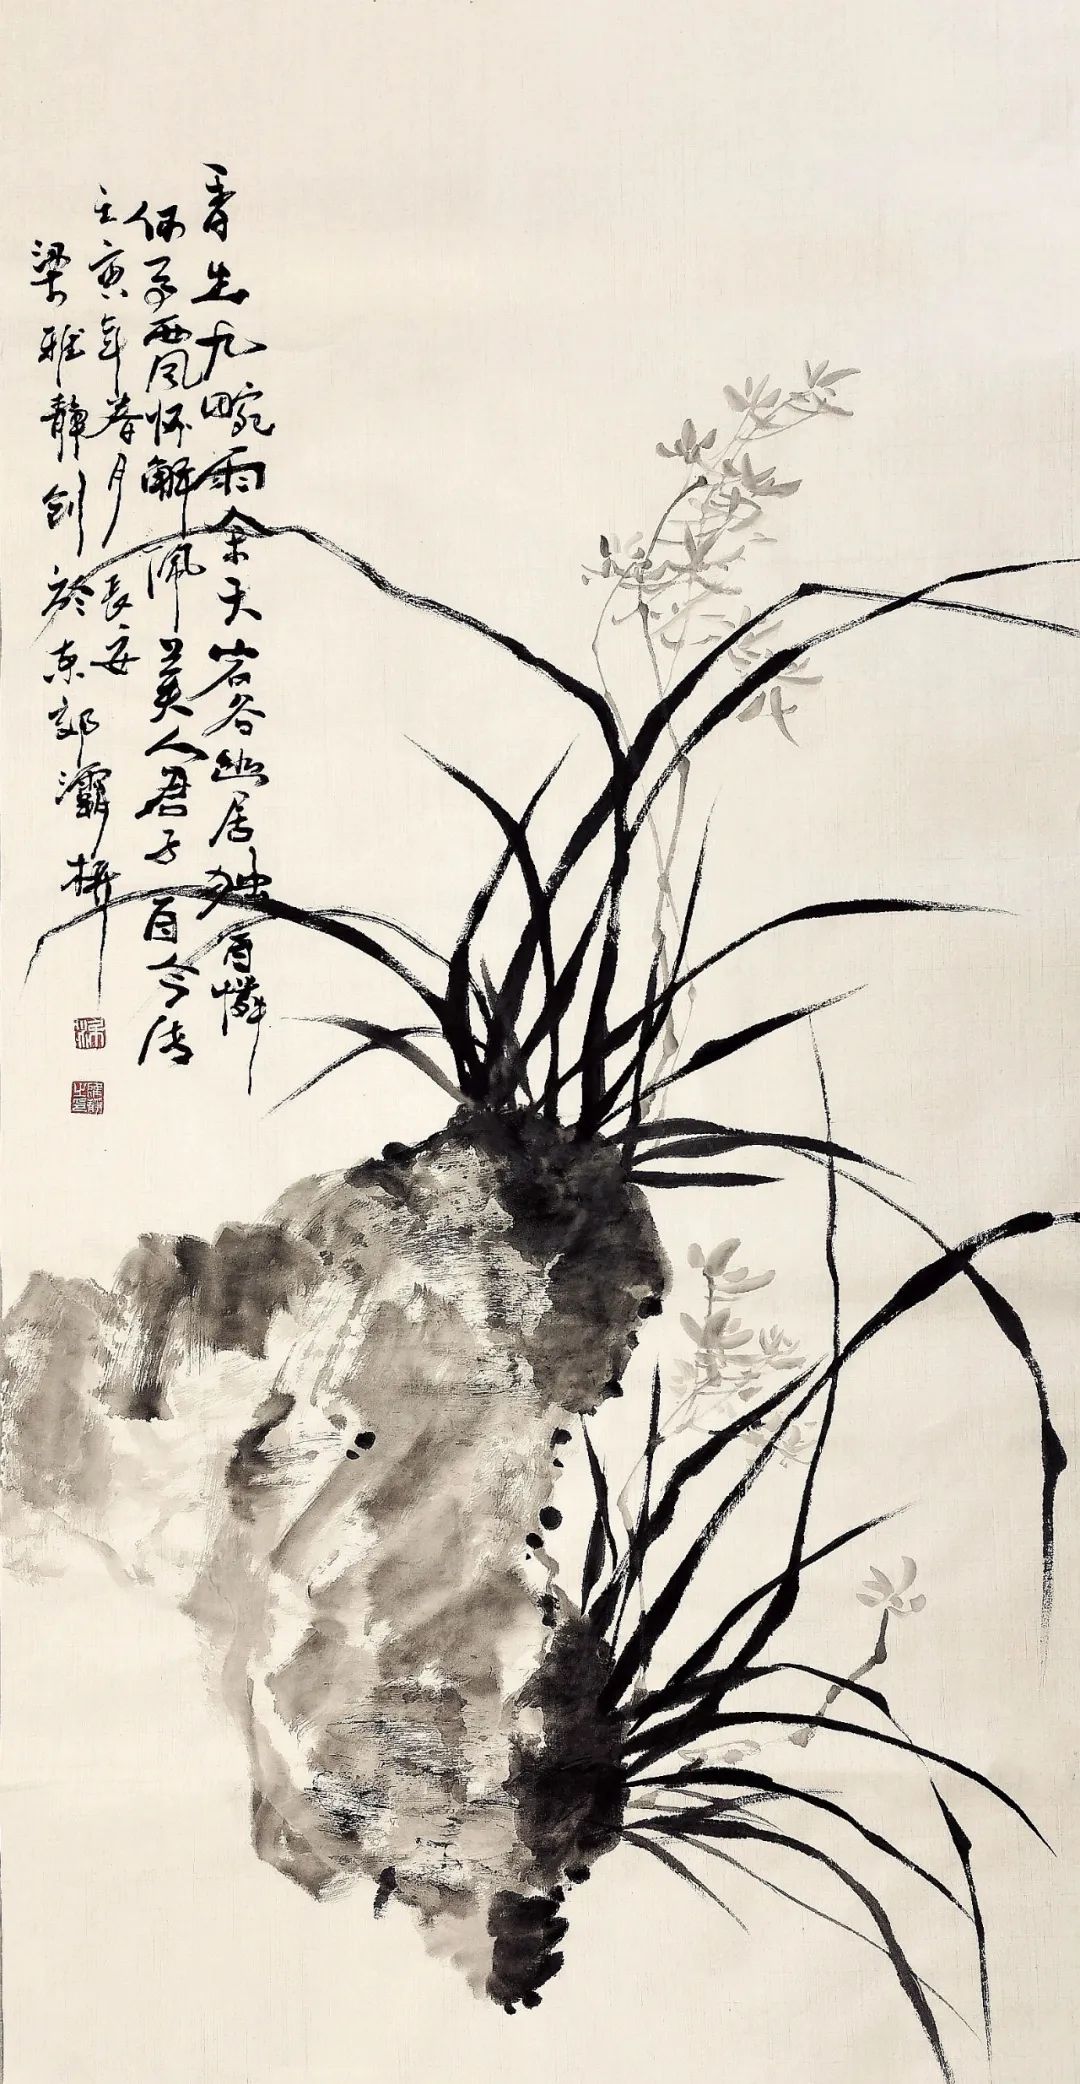 香生九畹雨余天岩谷幽居独自怜
何事西风怀解佩美人君子自今传
壬寅年春月长安
梁雅静创於东郊灞桥